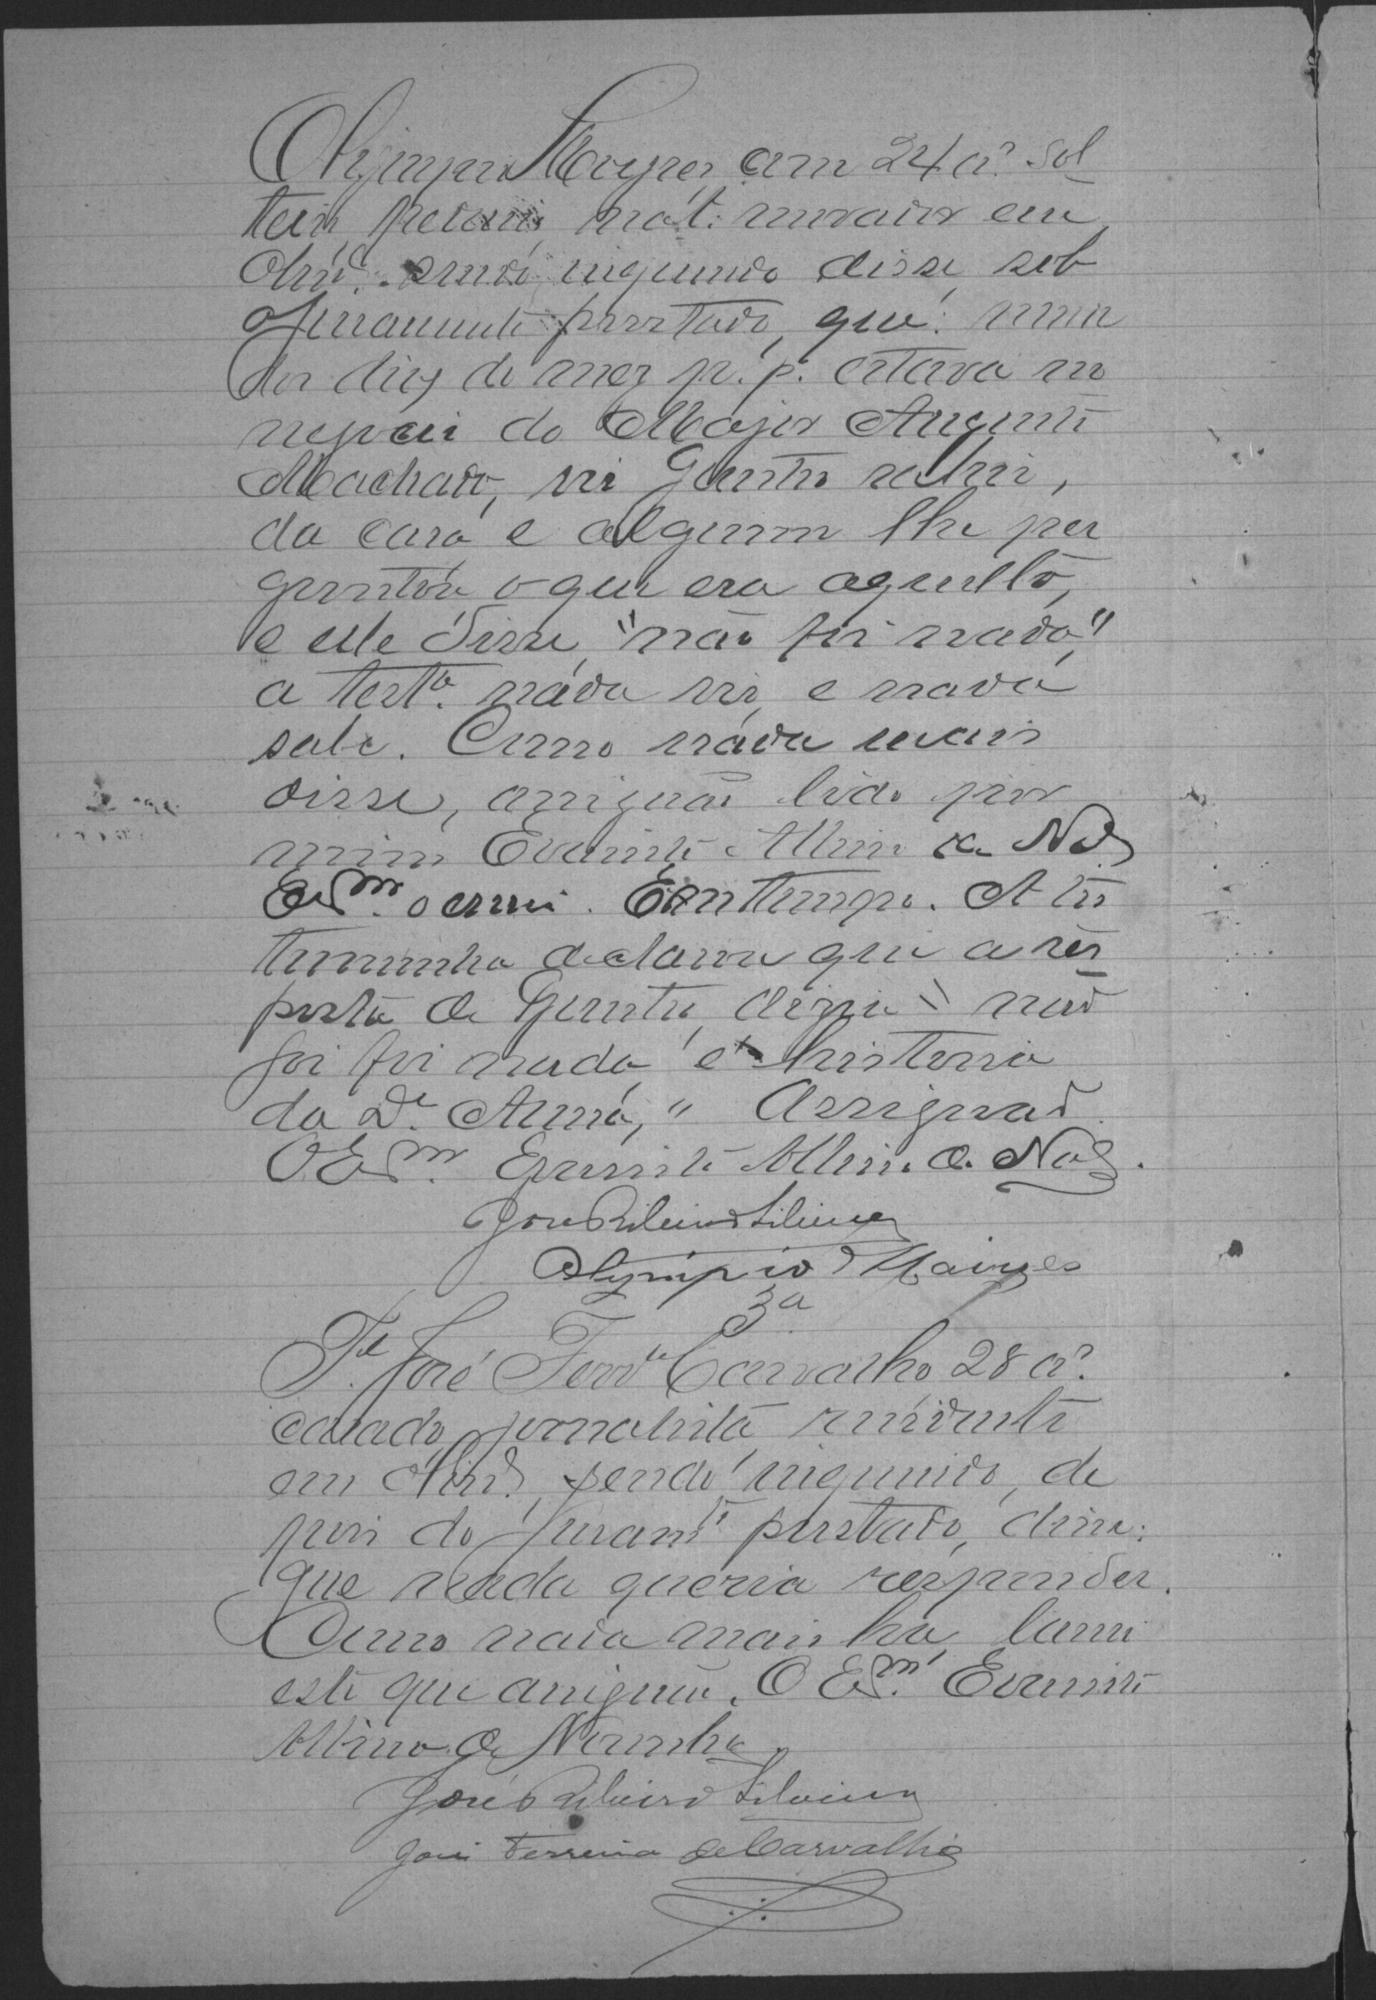 Olympio Moyses, com 24 an.s sol
teiro, nat. morador em
sendo inquirido disse, sob
Juramento prestado, que: num
dos dias do mez p. p. estava no
negocio do Major Augusto
Machado, vi Juntho sahir,
da casa e alguem lhe per
guntou o que era aquillo,
e elle disse, "não foi nada,"
a test.a nada viu e nada
sabe. Como nada mais
disse, assignão lido por
mim Evaristo Albino de No.
Esm. o escrevi. Em tempo. A tes
temunha declarou que a res
posta de dizia "não
foi foi nada é historia
da D. Anna," Assignad
O Esm. Evaristo Albino de No.
José Ribeiro Silveira
Olympio Moyses
3a
T. José Ferr.a Carvalho, 28 an.s
casado, jornalista residente
em sendo inquirido, de
pois do Juram.to prestado, disse:
que nada queria responder.
Como nada mais ha, lavrei
este que assignão. O Esm. Evaristo
Albino de Noronha.
José Ribeiro Silveira
José Ferreira de Carvalho